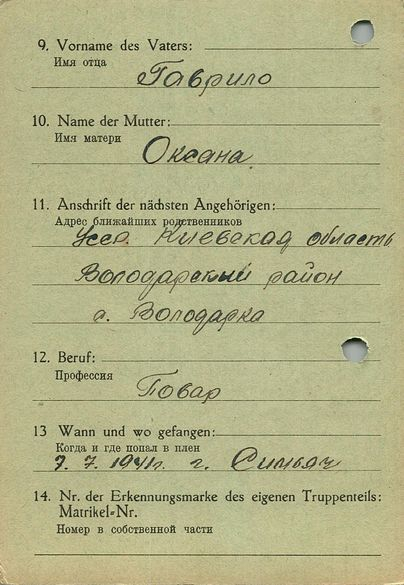 9. Vorname des Vaters:
Имя отца
Гаврило
10. Name der Mutter:
Имя матери
Оксана
11. Anschrift der nächsten Angehörigen:
Адрес ближайших родственников
Усср. Киевская область
Володарский район
с. Володарка
12. Beruf:
Профессия
Повар
13 Wann und wo gefangen:
Когда и где попал в плен
7. 7. 1941 г. г.
14. Nr. der Erkennungsmarke des eigenen Truppenteils:
Matrikel-Nr.
Номер в собственной части